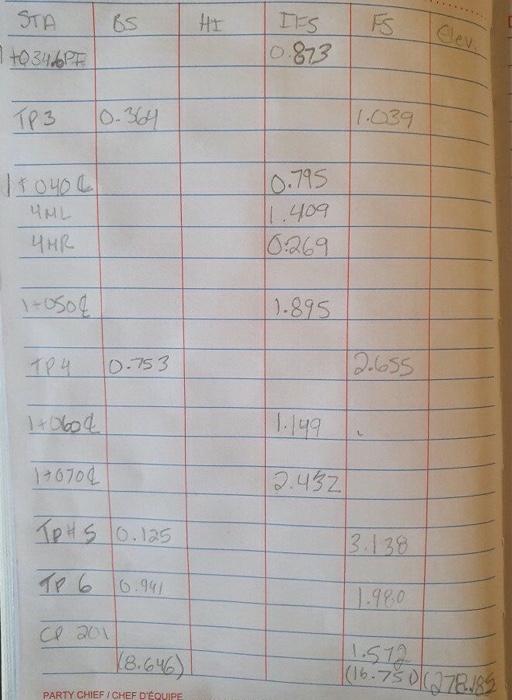 STA BS HI IFS FS Elev.
1+034.6PF 0.873
TP3 0.364 1.039
1+040 ℄ 0.795
4ML 1.409
4MR 0.269
1+050 ℄ 1.895
TP4 0.753 2.655
1+060 ℄ 1.149
1+070 ℄ 2.432
TP#5 0.125 3.138
TP 6 0.941 1.980
CP 201 1.572
(8.646) (16.751) (278.182
PARTY CHIEF / CHEF D'ÉQUIPE